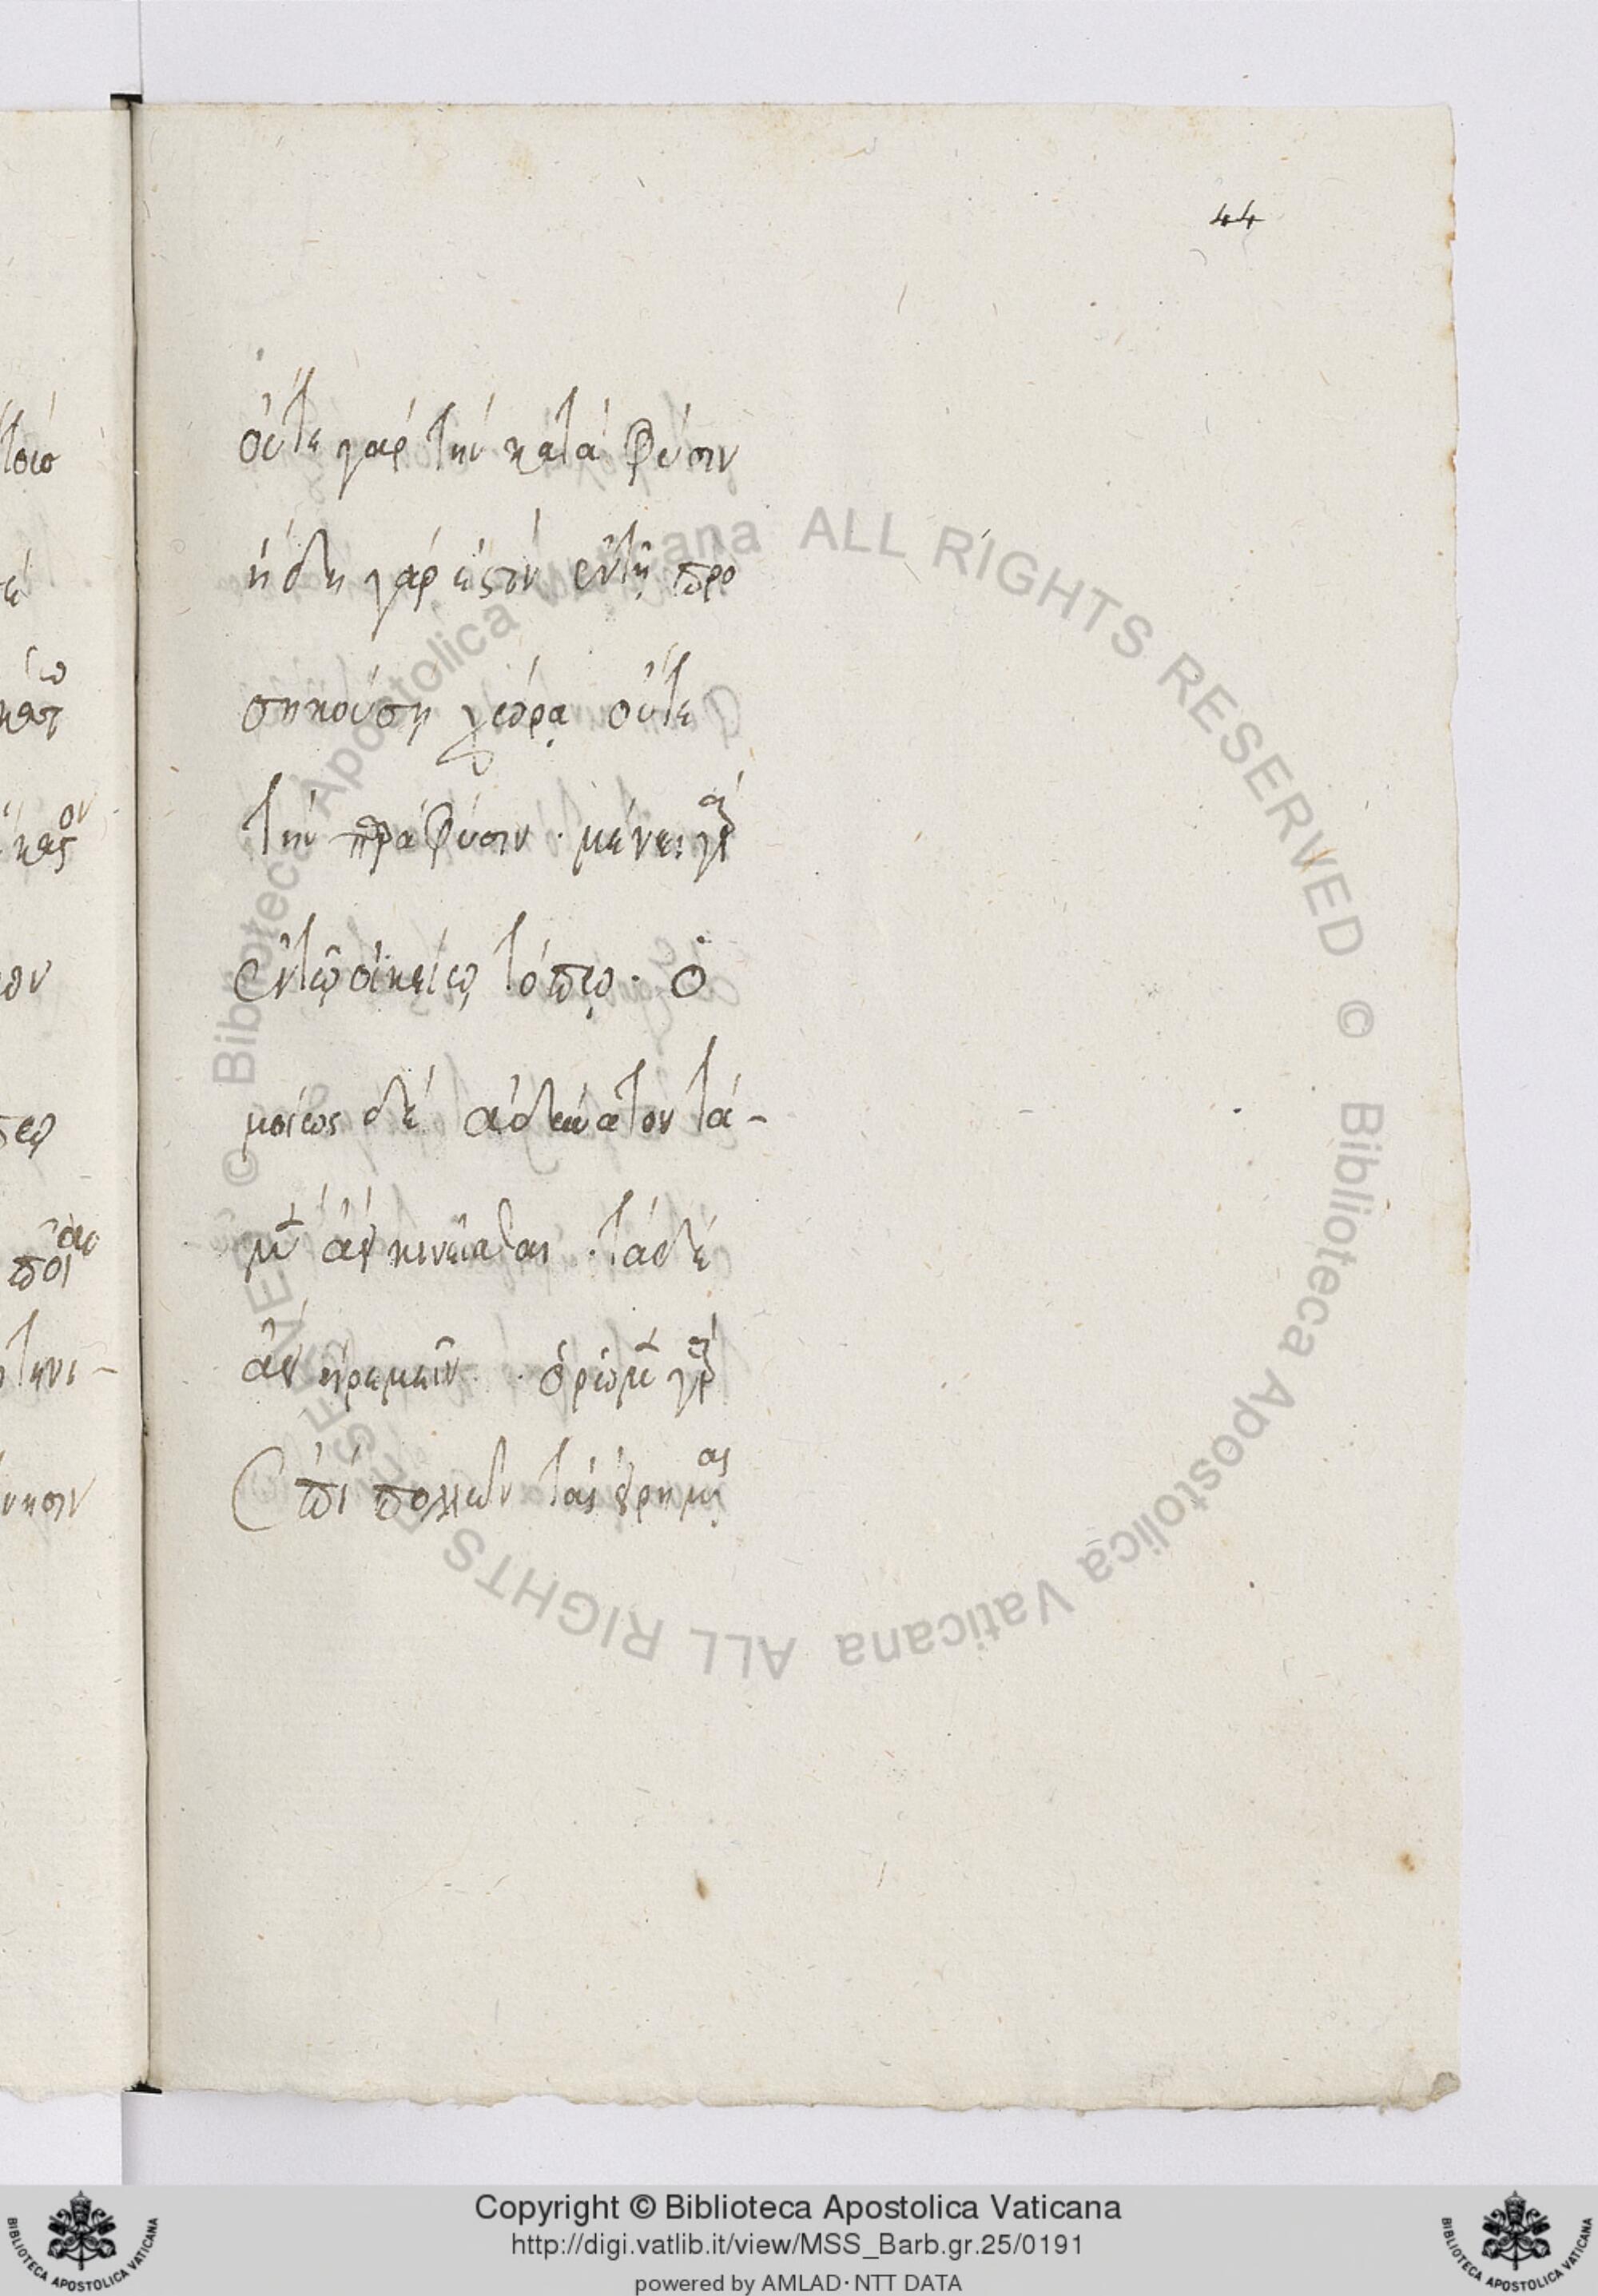 44
τοιο
οὔτε γὰρ τὴν κατὰ φύσιν
ἤδη γάρ ἐστιν ἐν τῇ προ
σηκούσῃ χώρᾳ οὔτε
τὴν παρὰ φύσιν · μένει γὰρ
ἐν τῷ οἰκείῳ τόπῳ · ὁ
μοίως δὲ ἀδύνατον τὰ -
μὲν ἀεὶ κινεῖσθαι · τὰ δὲ
ἀεὶ ἠρεμεῖν · ὁρῶμεν γὰρ
ἐπὶ πολλῶν τὰς ἠρεμίας
© Biblioteca Apostolica Vaticana ALL RIGHTS RESERVED © Biblioteca Apostolica Vaticana ALL RIGHTS RESERVED
Copyright © Biblioteca Apostolica Vaticana
http://digi.vatlib.it/view/MSS_Barb.gr.25/0191
powered by AMLAD·NTT DATA
BIBLIOTECA APOSTOLICA VATICANA
BIBLIOTECA APOSTOLICA VATICANA